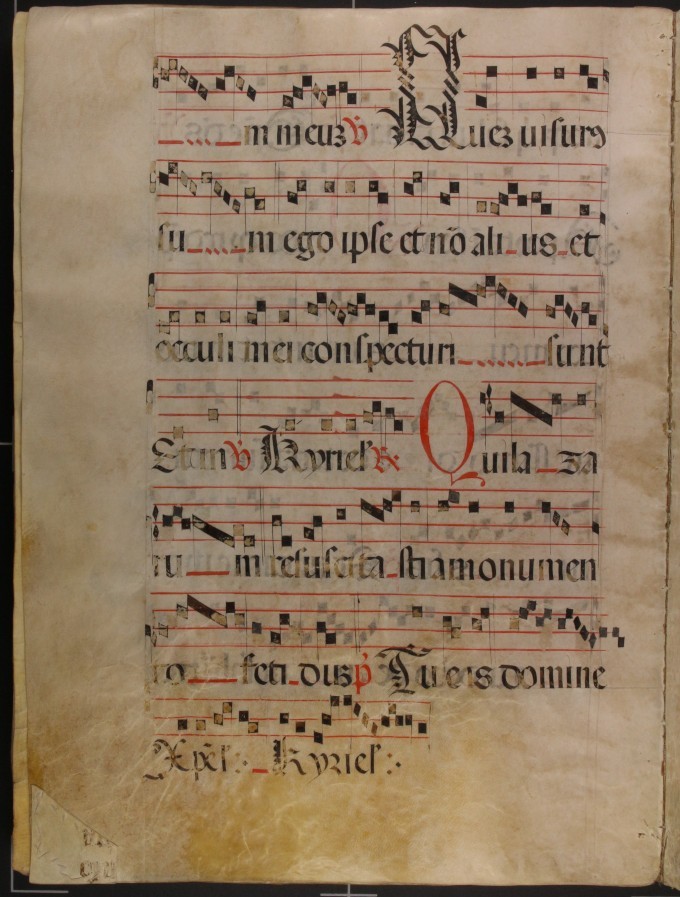 m meuz ℣ Quez visurꝯ
su m ego ipse et nō ali us et
occuli mei conspecturi sunt
Et in ℣ Kyriel ℟ Qui la za
ru m resuscita sti a monumen
to feti dus p̄ Tu eis domine
Xp̄el :· Kyriel :·